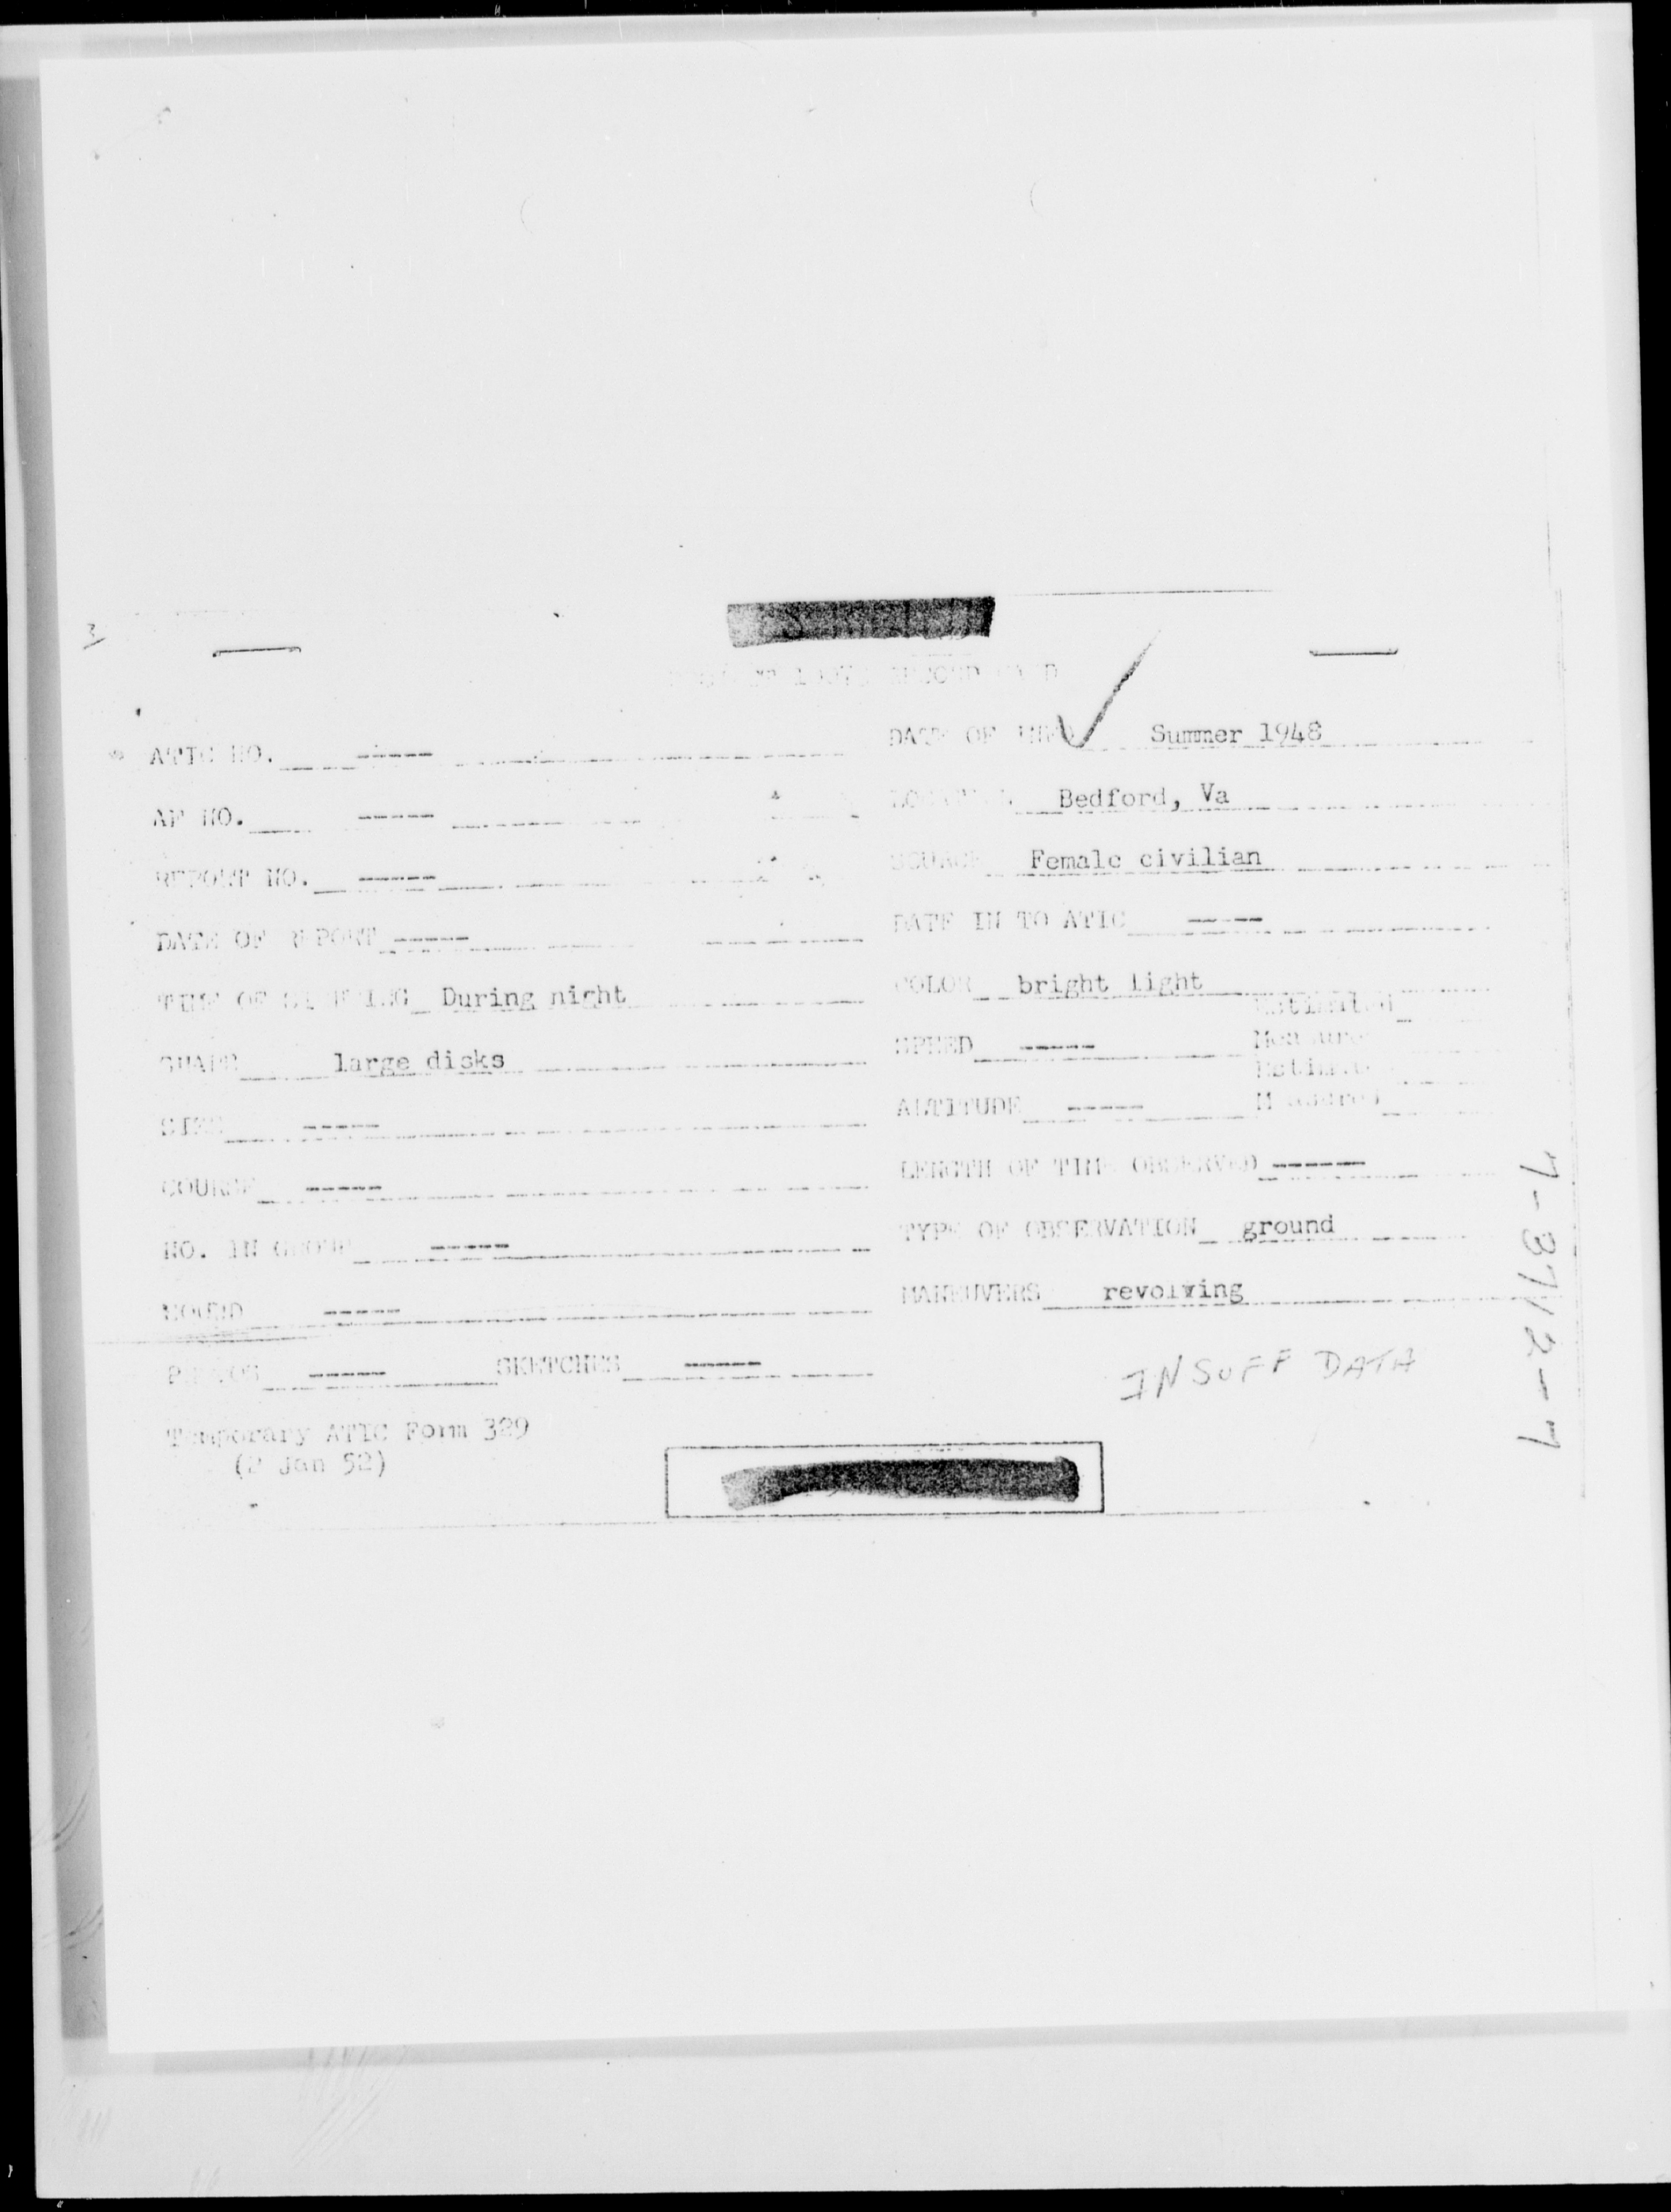 3
ATIC NO. -----
DATE OF INFO Summer 1948
AF NO. -----
LOCATION Bedford, Va
REPORT NO. -----
SOURCE Female civilian
DATE OF REPORT -----
DATE IN TO ATIC -----
TIME OF SIGHTING During night
COLOR bright light
SHAPE large disks
SPEED ----- Estimated
Measured
SIZE -----
ALTITUDE ----- Estimated
Measured
COURSE -----
LENGTH OF TIME OBSERVED -----
NO. IN GROUP -----
TYPE OF OBSERVATION ground
SOUND -----
MANEUVERS revolving
PHOTOS ----- SKETCHES -----
INSUFF DATA
Temporary ATIC Form 329
(2 Jan 52)
7-3712-7